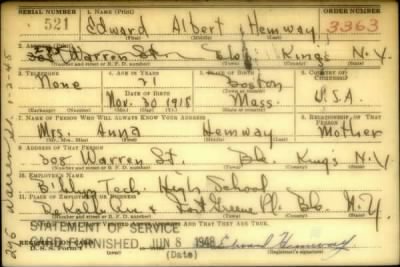 SERIAL NUMBER 1. NAME (Print) ORDER NUMBER
521 Edward Albert Hemway 3363
(First) (Middle) (Last)
2. ADDRESS (Print)
308 Warren St. Kings N.Y.
(Number and street or R. F. D. number) (Town) (County) (State)
3. TELEPHONE 4. AGE IN YEARS 5. PLACE OF BIRTH 6. COUNTRY OF CITIZENSHIP
None 21 Boston
DATE OF BIRTH
Nov. 30 1918 Mass. U.S.A.
(Exchange) (Number) (Mo.) (Day) (Yr.) (State or country)
7. NAME OF PERSON WHO WILL ALWAYS KNOW YOUR ADDRESS 8. RELATIONSHIP OF THAT PERSON
Mrs. Anna Hemway Mother
(Mr., Mrs., Miss) (First) (Middle) (Last)
9. ADDRESS OF THAT PERSON
308 Warren St. Bk. Kings N.Y.
(Number and street or R. F. D. number) (Town) (County) (State)
10. EMPLOYER'S NAME
B'klyn Tech. High School
11. PLACE OF EMPLOYMENT OR BUSINESS
DeKalb Ave & Fort Greene Pl. Bk. N.Y.
(Number and street or R. F. D. number) (Town) (County) (State)
STATEMENT OF SERVICE
CARD FURNISHED JUN 8 1948 Edward Hemway
(Date)
REGISTRATION CARD
D. S. S. Form 1
296 Warren St.